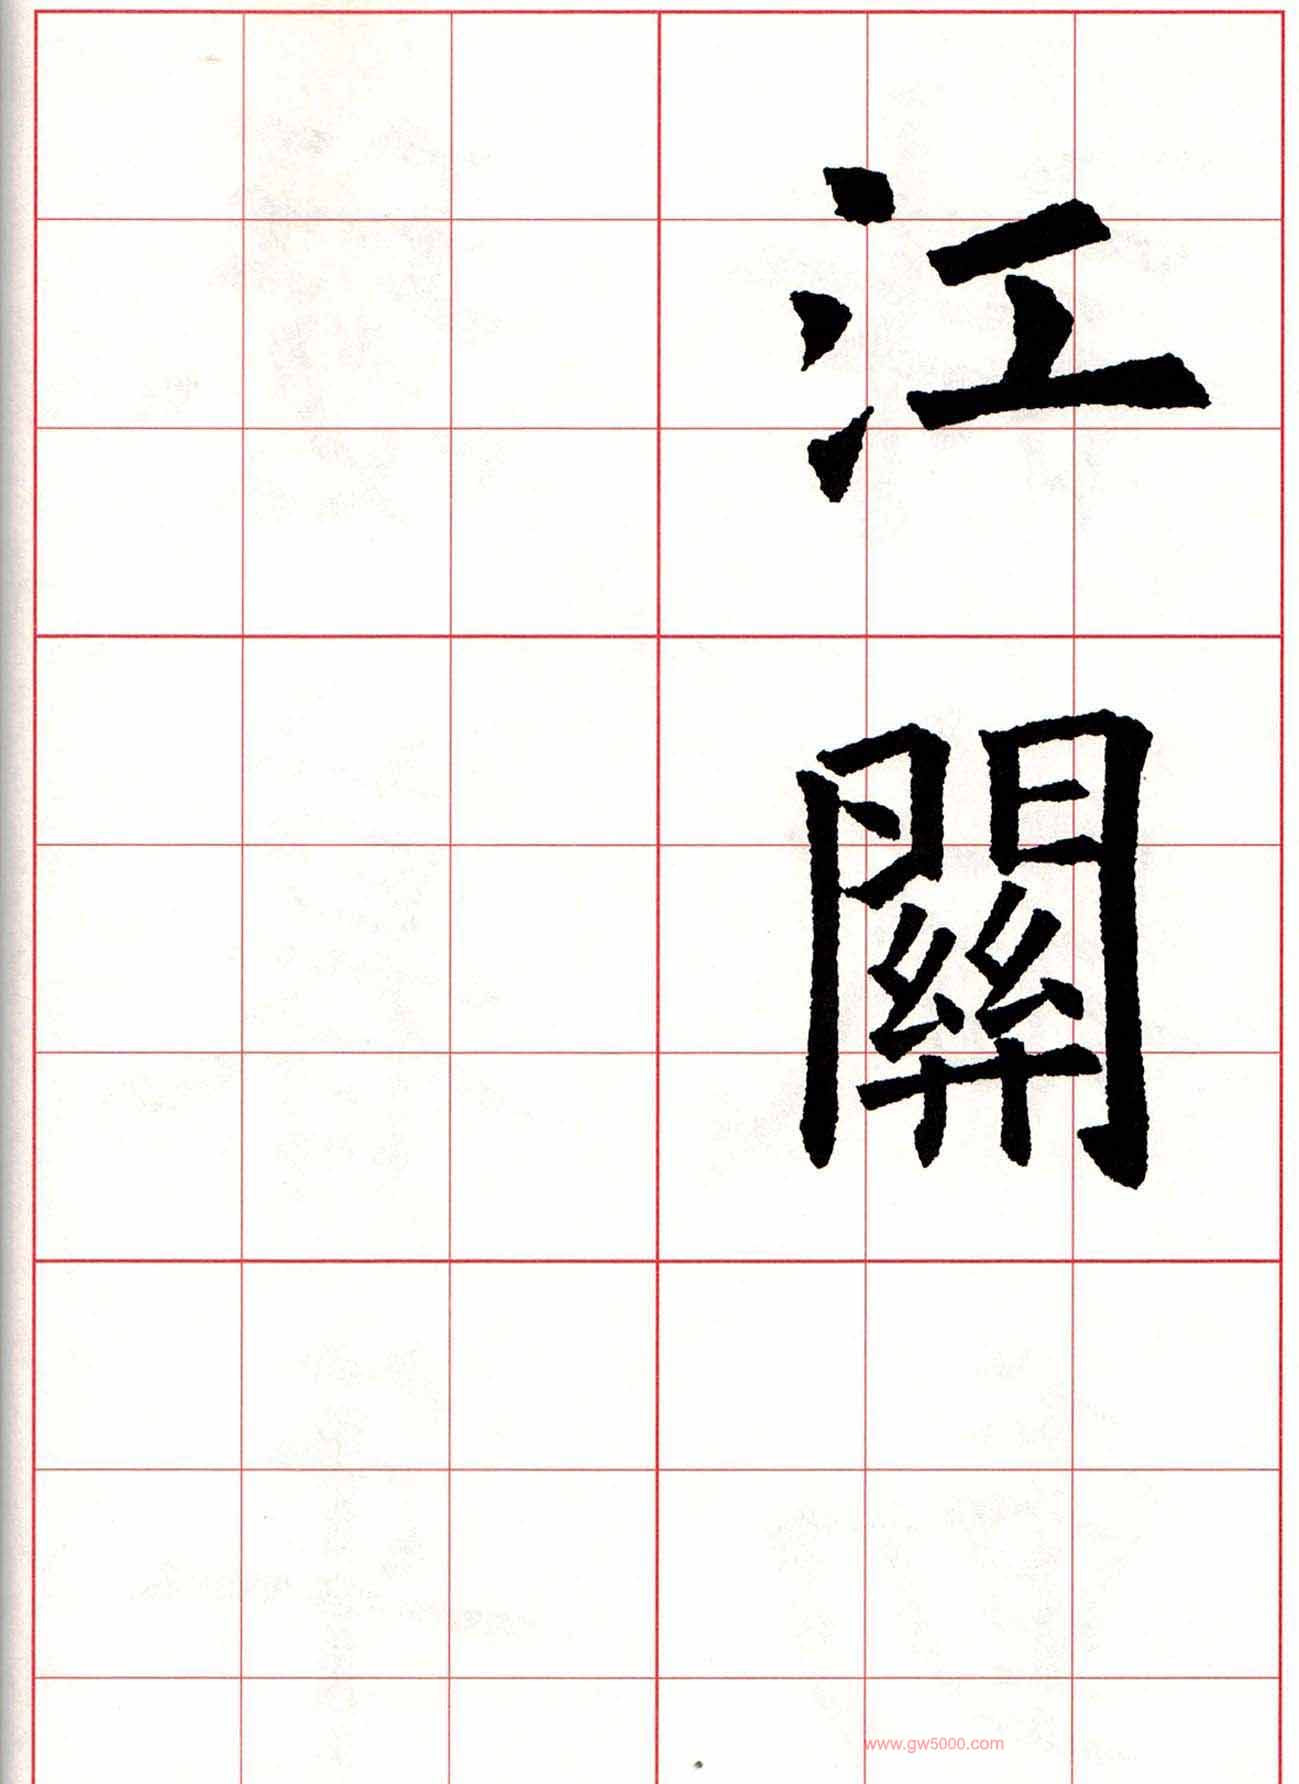 江
關
www.gw5000.com